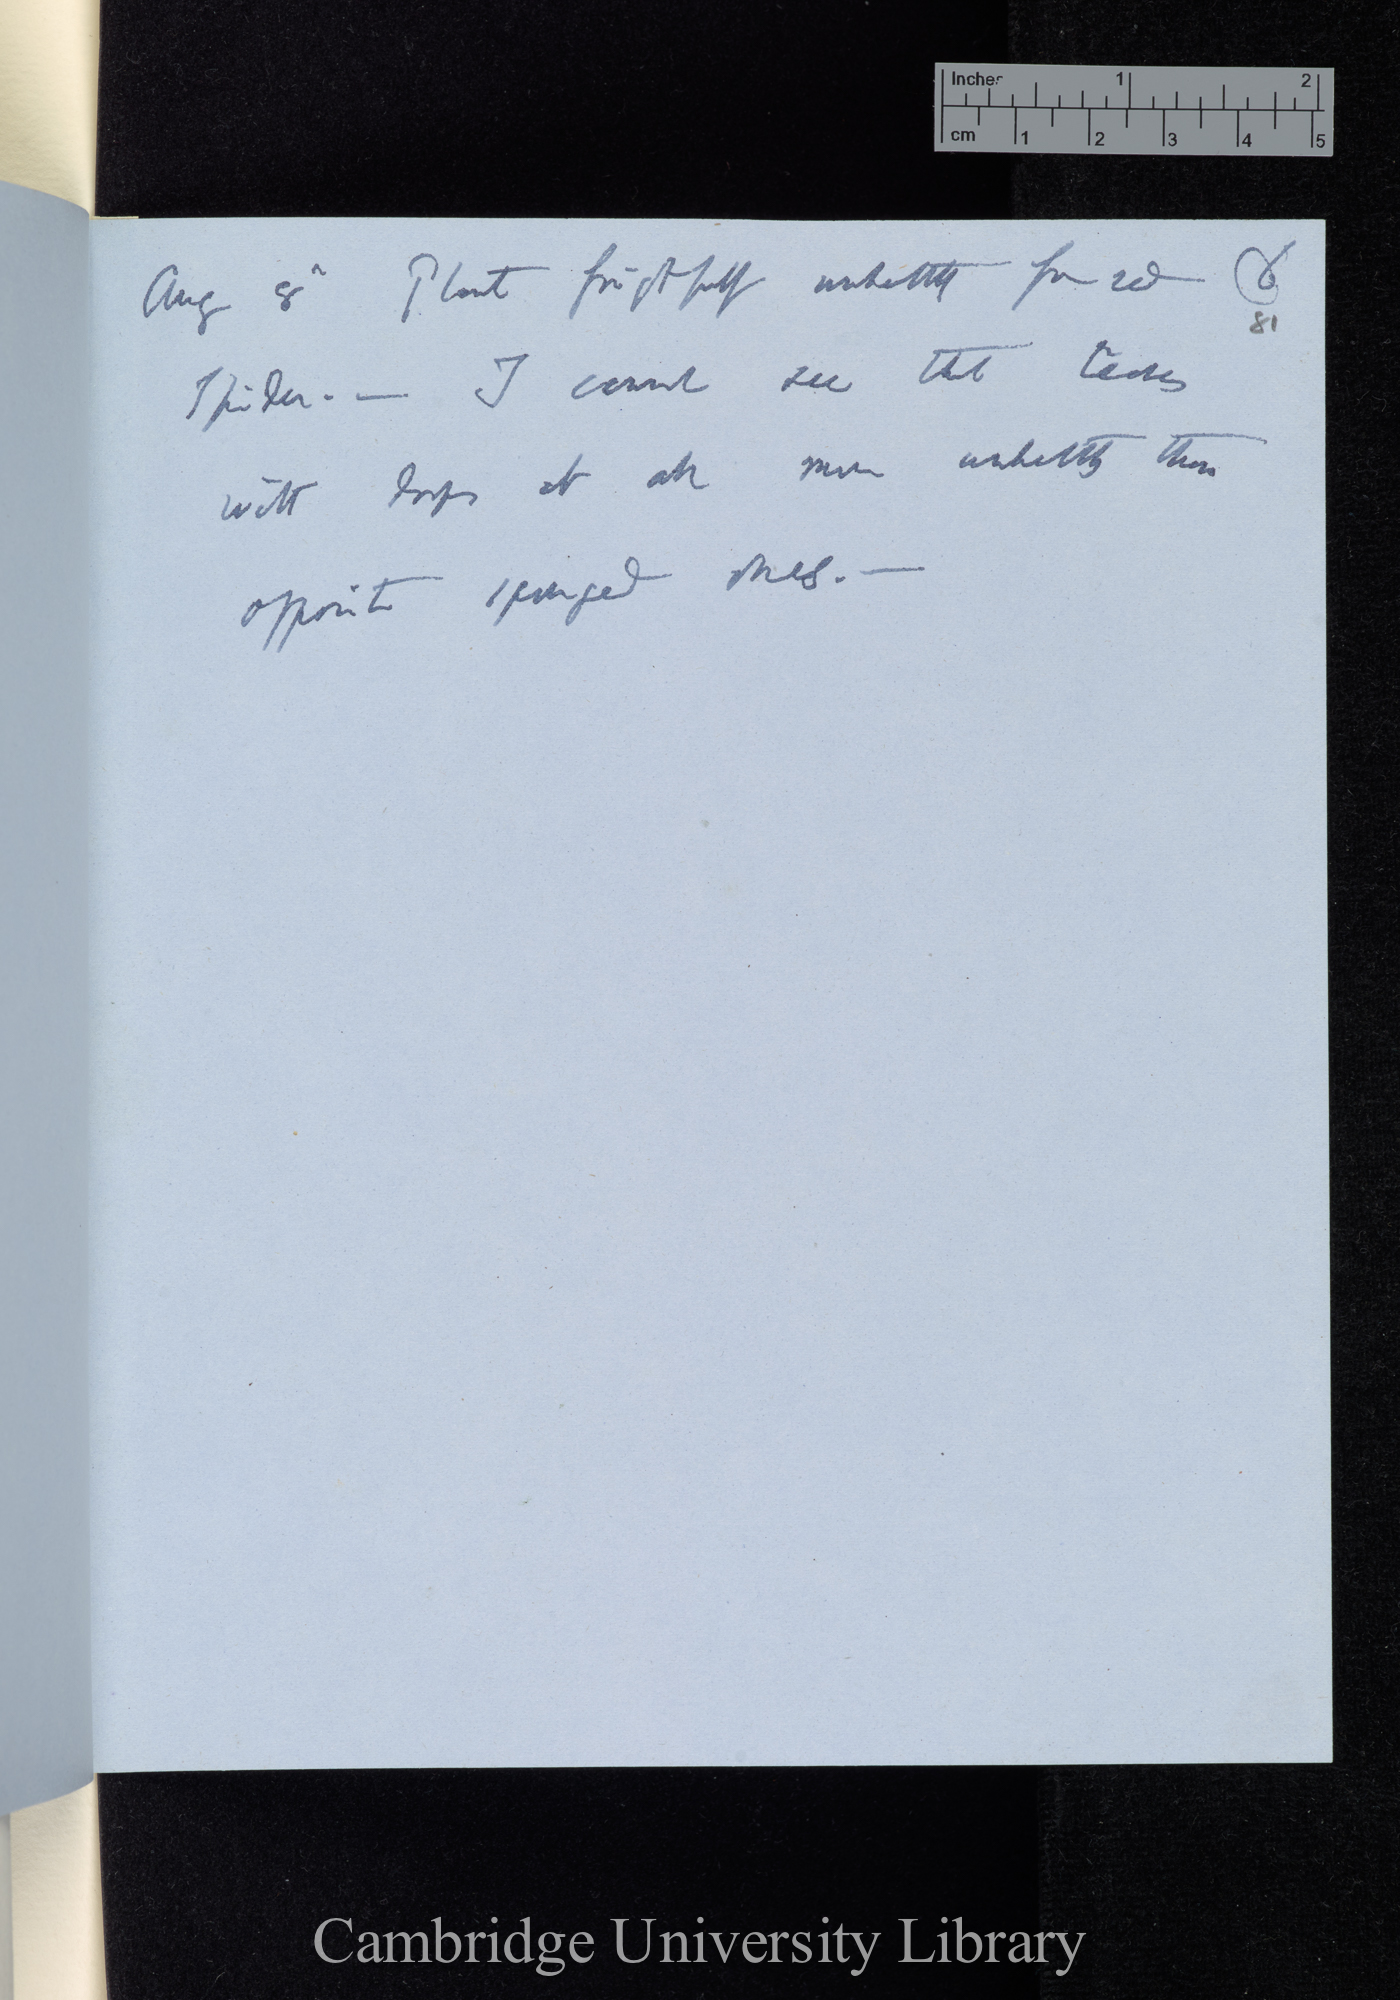 Inches 1 2
cm 1 2 3 4 5
Aug 8th Plant frightfully unhealthy from red 6
81
Spider. — I cannot see that leaves
with drops at all more unhealthy than
opposite sponged ones. —
Cambridge University Library